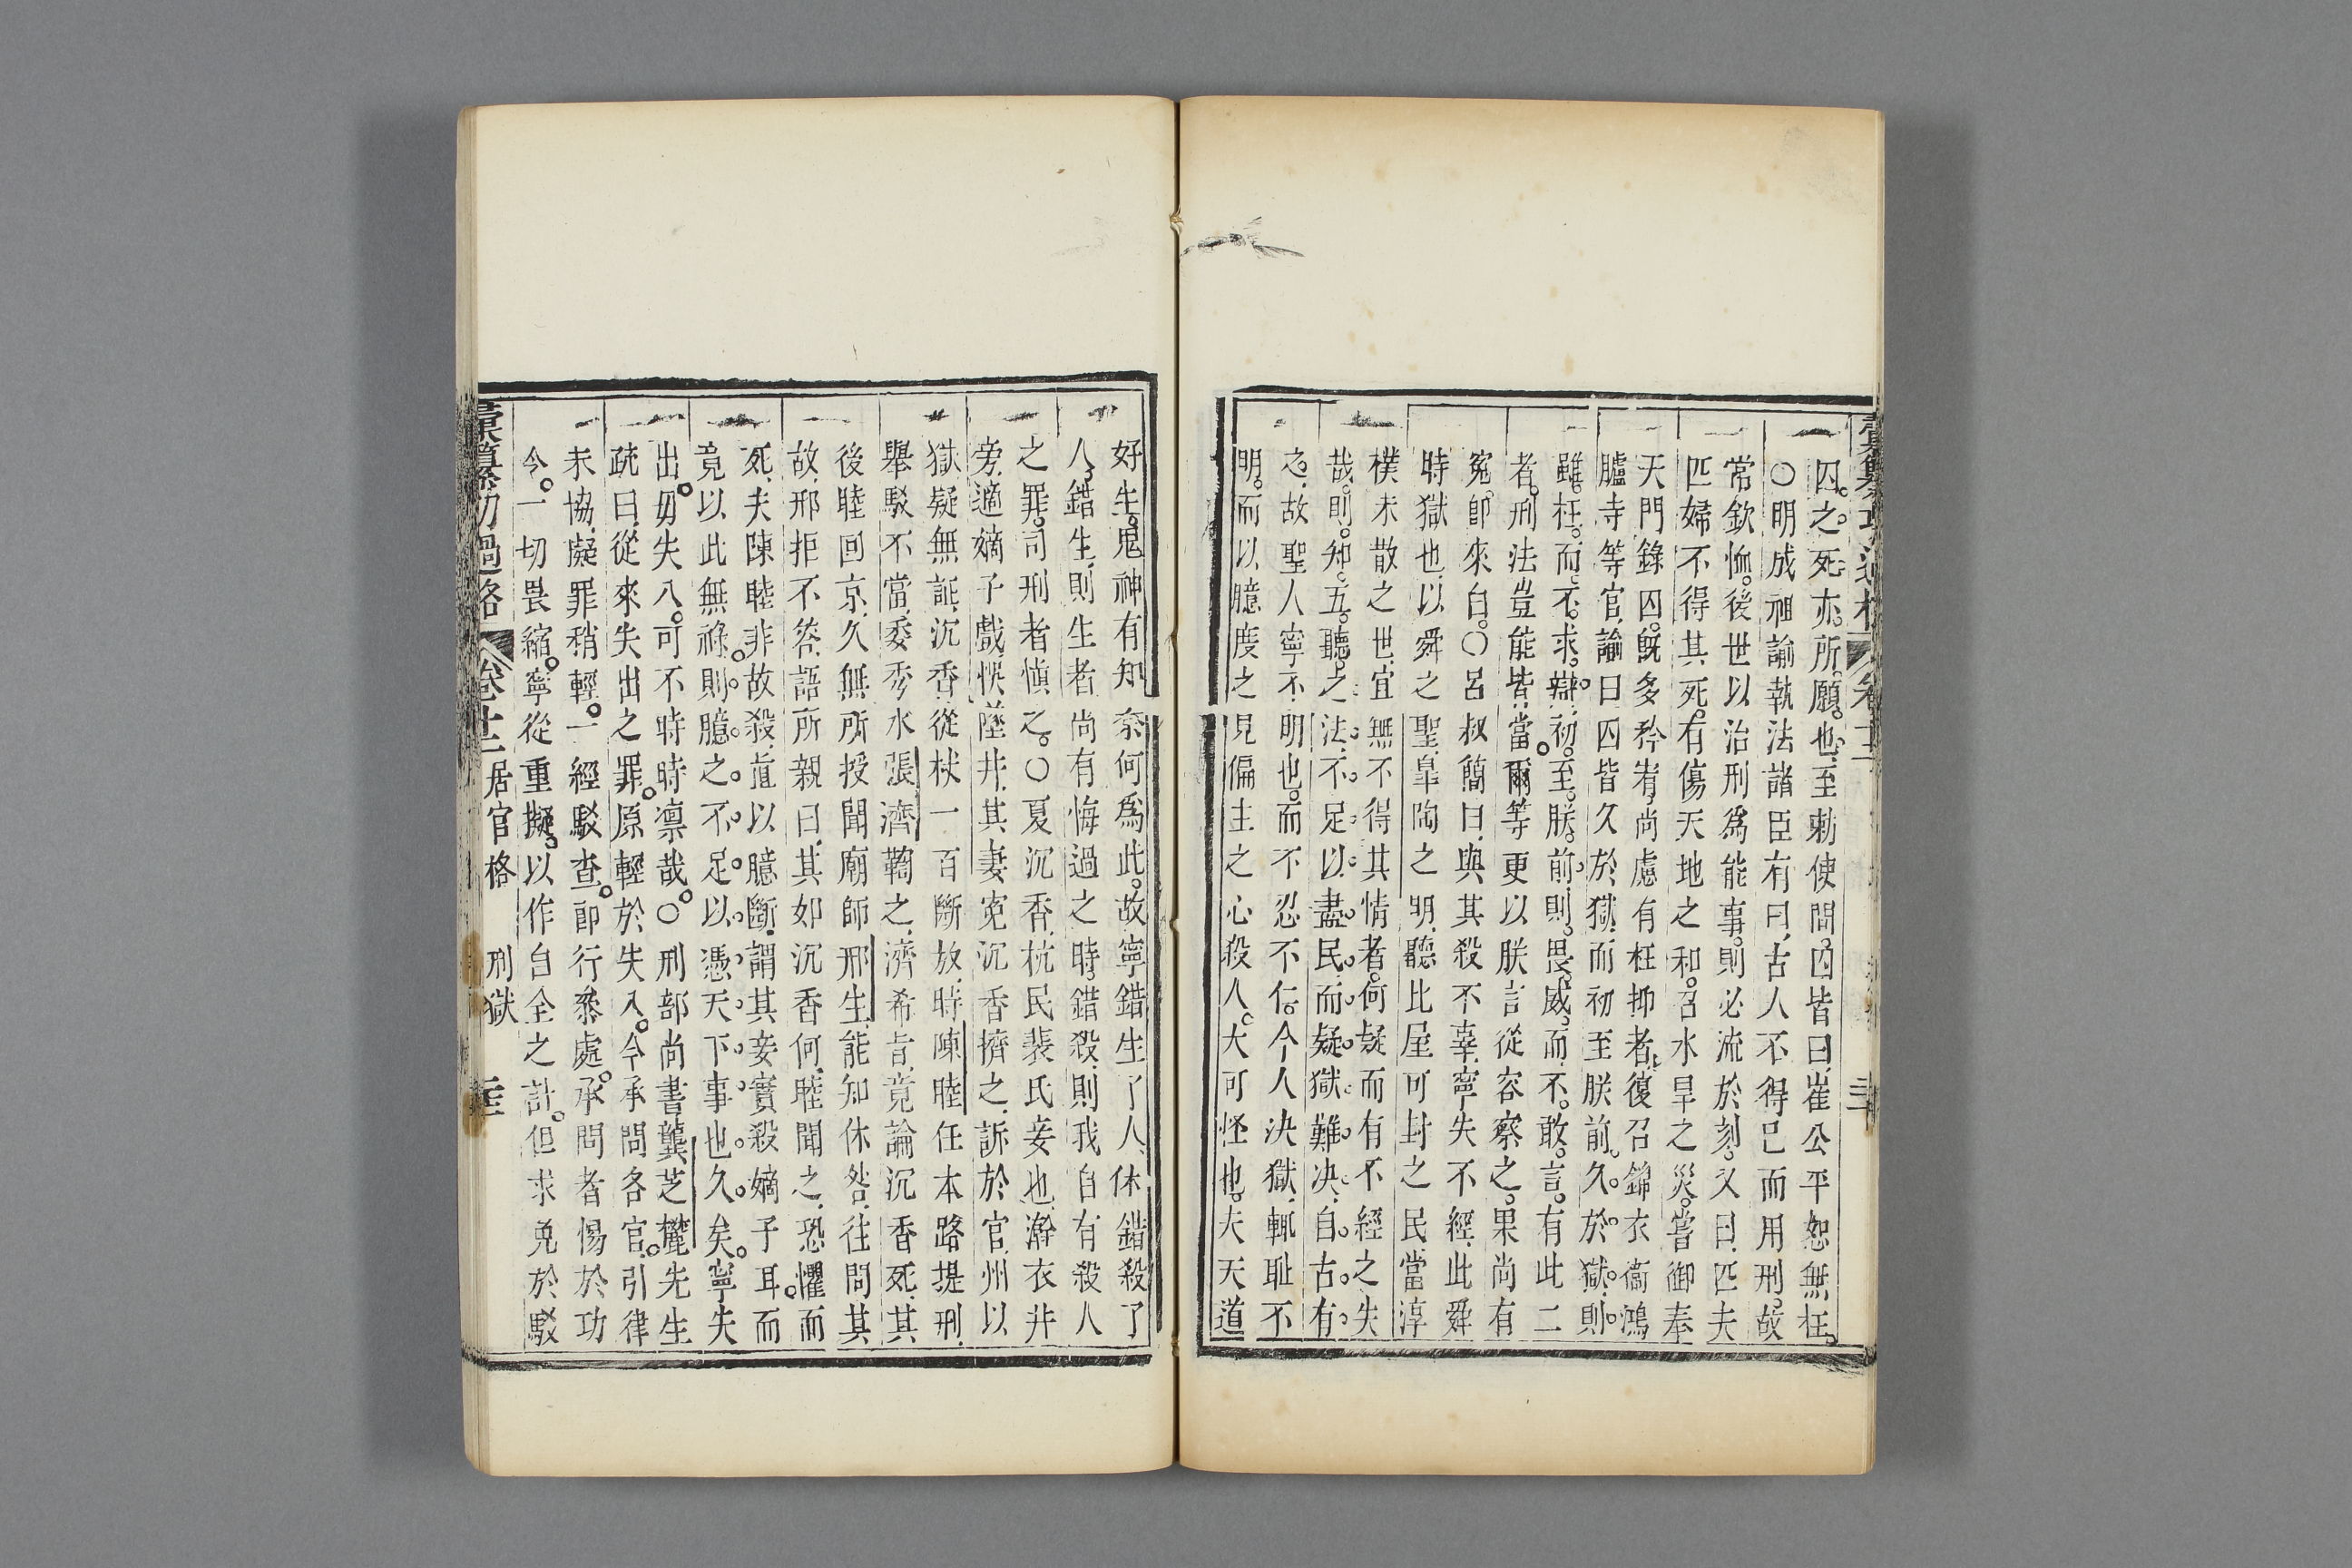 囚之死亦所願也至勅使問囚皆曰崔公平恕無枉
○明成祖諭執法諸臣有曰古人不得已而用刑故
常欽恤後世以治刑爲能事則必流於刻又曰匹夫
匹婦不得其死有傷天地之和召水旱之災嘗御奉
天門錄囚旣多矜宥尚慮有枉抑者復召錦衣衞鴻
臚寺等官諭曰囚皆久於獄而初至朕前久於獄則
雖枉而不求辯初至朕前則畏威而不敢言有此二
者刑法豈能皆當爾等更以朕言從容察之果尚有
寃卽來白○呂叔簡曰與其殺不辜寧失不經此舜
時獄也以舜之聖皐陶之明聽比屋可封之民當淳
樸未散之世宜無不得其情者何疑而有不經之失
哉則知五聽之法不足以盡民而疑獄難决自古有
之故聖人寧不明也而不忍不仁今人決獄輒耻不
明而以臆度之見偏主之心殺人大可怪也夫天道
好生鬼神有知奈何爲此故寧錯生了人休錯殺了
人錯生則生者尚有悔過之時錯殺則我自有殺人
之罪司刑者愼之○夏沉香杭民裴氏妾也澣衣井
旁適嫡子戲悞墜井其妻寃沉香擠之訴於官州以
獄疑無証沉香從杖一百斷放時陳睦任本路提刑
舉駁不當委秀水張濟鞫之濟希旨竟論沉香死其
後睦回京久無所授聞廟師邢生能知休咎往問其
故邢拒不答語所親曰其如沉香何睦聞之恐懼而
死夫陳睦非故殺直以臆斷謂其妾實殺嫡子耳而
竟以此無祿則臆之不足以憑天下事也久矣寧失
出毋失入可不時時凛哉○刑部尚書龔芝麓先生
疏曰從來失出之罪原輕於失入今承問各官引律
未協擬罪稍輕一經駁查卽行叅處承問者惕於功
令一切畏縮寧從重擬以作自全之計但求免於駁
卷十二 居官格 刑獄